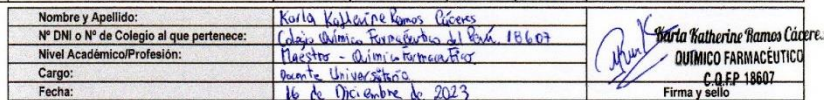 Nombre y Apellido: Karla Katherine Ramos Cáceres
Nº DNI o Nº de Colegio al que pertenece: Colegio Químico Farmacéutico del Perú. 18607
Nivel Académico/Profesión: Maestro - Químico Farmacéutico
Cargo: Docente Universitario
Fecha: 16 de Diciembre de 2023
Karla Katherine Ramos Cácere.
QUÍMICO FARMACÉUTICO
C.Q.F.P 18607
Firma y sello